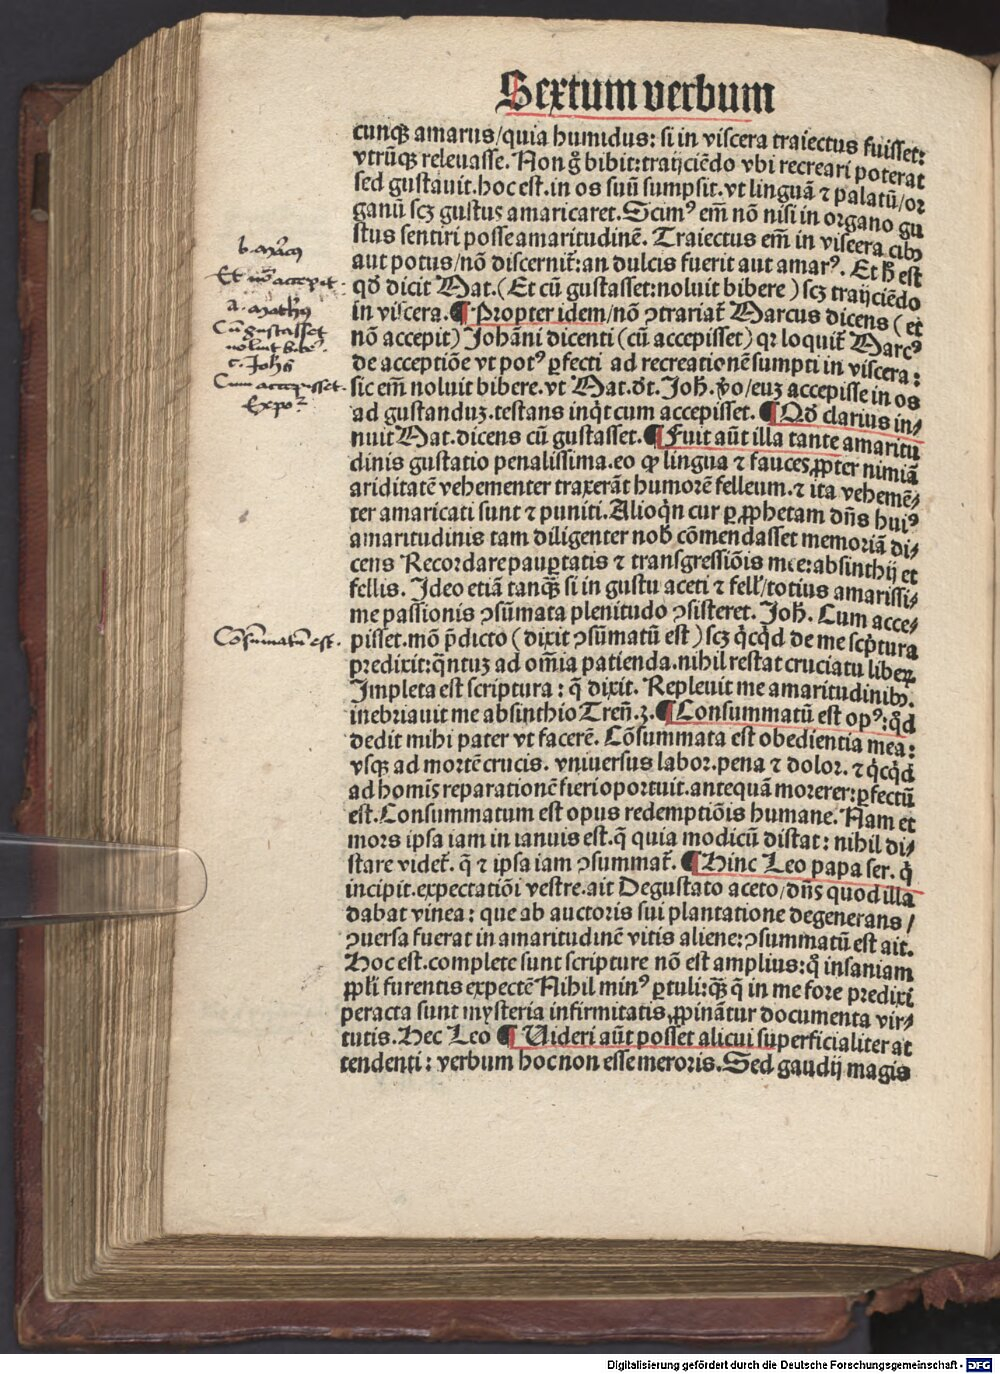 Sextum verbum
cunqꝫ amarus/quia humidus: si in viscera traiectus fuisset:
vtrũqꝫ releuasse. Non gͦ bibit: traijciẽdo vbi recreari poterat
sed gustauit. hoc est. in os suũ sumpsit. vt linguã ⁊ palatũ/or
ganũ scꝫ gustus amaricaret. Scimꝰ em̃ nõ nisi in organo gu
stus sentiri posse amaritudinẽ. Traiectus em̃ in viscera cibꝰ
aut potus/nõ discernit̃: an dulcis fuerit aut amarꝰ. Et h̃ est
qd̃ dicit Mat. (Et cũ gustasset: noluit bibere) scꝫ traijciẽdo
in viscera. ¶ Propter idem/nõ ꝯtrariat̃ Marcus dicens (et
nõ accepit) Johãni dicenti (cũ accepisset) qꝛ loquit̃ Marcꝰ
de acceptiõe vt potꝰ ꝑfecti ad recreationẽ sumpti in viscera:
sic em̃ noluit bibere. vt Mat. dt̃. Joh̃. v̊o/euꝫ accepisse in os
ad gustanduꝫ. testans inq̇t cum accepisset. ¶ Qd̃ clarius in/
nuit Mat. dicens cũ gustasset. ¶ Fuit aũt illa tante amaritu
dinis gustatio penalissima. eo ꝙ lingua ⁊ fauces ꝓpter nimiã
ariditatẽ vehementer traxerãt humorẽ felleum. ⁊ ita vehemẽ/
ter amaricati sunt ⁊ puniti. Alioq̇n cur ꝑ ꝓphetam dñs huiꝰ
amaritudinis tam diligenter nob̃ cõmendasset memoriã di/
cens Recordare pauꝑtatis ⁊ transgressiõis mee: absinthij et
fellis. Ideo etiã tanqꝫ̃ si in gustu aceti ⁊ fell̃/totius amarissi/
me passionis ꝯsũmata plenitudo ꝯsisteret. Joh̃. Cum acce/
pisset. mõ p̃dicto (dixit ꝯsũmatũ est) scꝫ q̇cq̇d de me scp̃tura
predixit: q̃ntuꝫ ad om̃ia patienda. nihil restat cruciatu libeꝝ
Impleta est scriptura: q̃ dixit. Repleuit me amaritudinibꝰ.
inebriauit me absinthio Treñ. 3. ¶ Consummatũ est opꝰ: qd̃
dedit mihi pater vt facerẽ. Cõsummata est obedientia mea:
vsqꝫ ad mortẽ crucis. vniuersus labor. pena ⁊ dolor. ⁊ q̇cq̇d
ad homĩs reparationẽ fieri oportuit. antequã morerer: ꝑfectũ
est. Consummatum est opus redemptiõis humane. Nam et
mors ipsa iam in ianuis est. q̃ quia modicũ distat: nihil di/
stare videt̃. q̃ ⁊ ipsa iam ꝯsummat̃. ¶ Hinc Leo papa ser. q̇
incipit. expectatiõi vestre. ait Degustato aceto/dñs quod illa
dabat vinea: que ab auctoris sui plantatione degenerans/
ꝯuersa fuerat in amaritudinẽ vitis aliene: ꝯsummatũ est ait.
Hoc est. complete sunt scripture nõ est amplius: q̊ insaniam
ꝓpl̃i furentis expectẽ Nihil minꝰ ꝑtuli: qꝫ̃ q̃ in me fore predixi
peracta sunt mysteria infirmitatis, ꝓpinãtur documenta vir/
tutis. Hec Leo ¶ Uideri aũt posset alicui superficialiter at
tendenti: verbum hoc non esse meroris. Sed gaudij magis
Et nõ accepit
a. Mathꝰ
Cũ gustasset
noluit bibe
c. Joh̃
Cum accepisset.
Expoꝛ
Cõsũmatũ est.
Digitalisierung gefördert durch die Deutsche Forschungsgemeinschaft - DFG